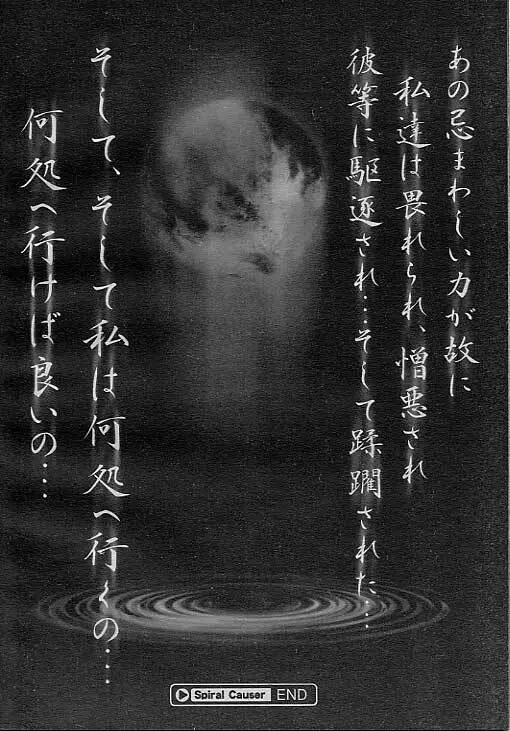 あの忌まわしい力が故に
私達は畏れられ、憎悪され
彼等に駆逐され…そして蹂躙された…
そして、そして私は何処へ行くの…
何処へ行けば良いの…
Spiral Causer END